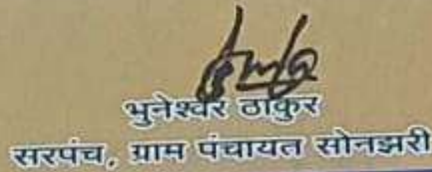 भुनेश्वर ठाकुर
सरपंच, ग्राम पंचायत सोनझरी